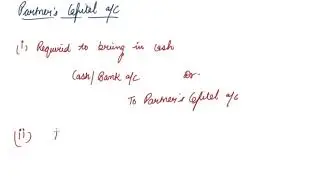 Partner's Capital a/c
(i) Required to bring in cash
Cash/Bank a/c Dr
To Partner's Capital a/c
(ii)